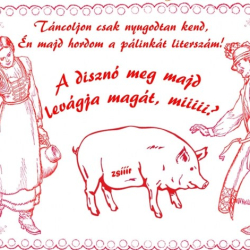 Táncoljon csak nyugodtan kend,
Én majd hordom a pálinkát literszám!
A disznó meg majd
levágja magát, miiiii,?
zsíííír